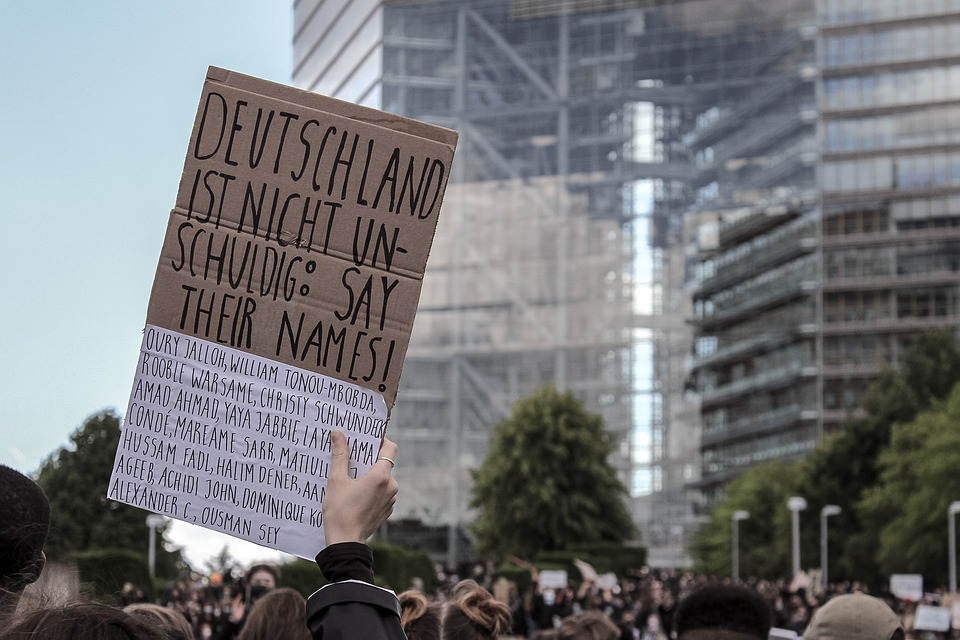 DEUTSCHLAND
IST NICHT UN-
SCHULDIG: SAY
THEIR NAMES!
OURY JALLOH, WILLIAM TONOU-MBOBDA,
ROOBLE WARSAME, CHRISTY SCHWUNDECK
AMAD AHMAD, YAYA JABBIE, LAYA
CONDÉ, MAREAME SARR, MATIULL
HUSSAM FADL, HALIM DENER, AAM
AGEEB, ACHIDI JOHN, DOMINIQUE KO
ALEXANDER C., OUSMAN SEY